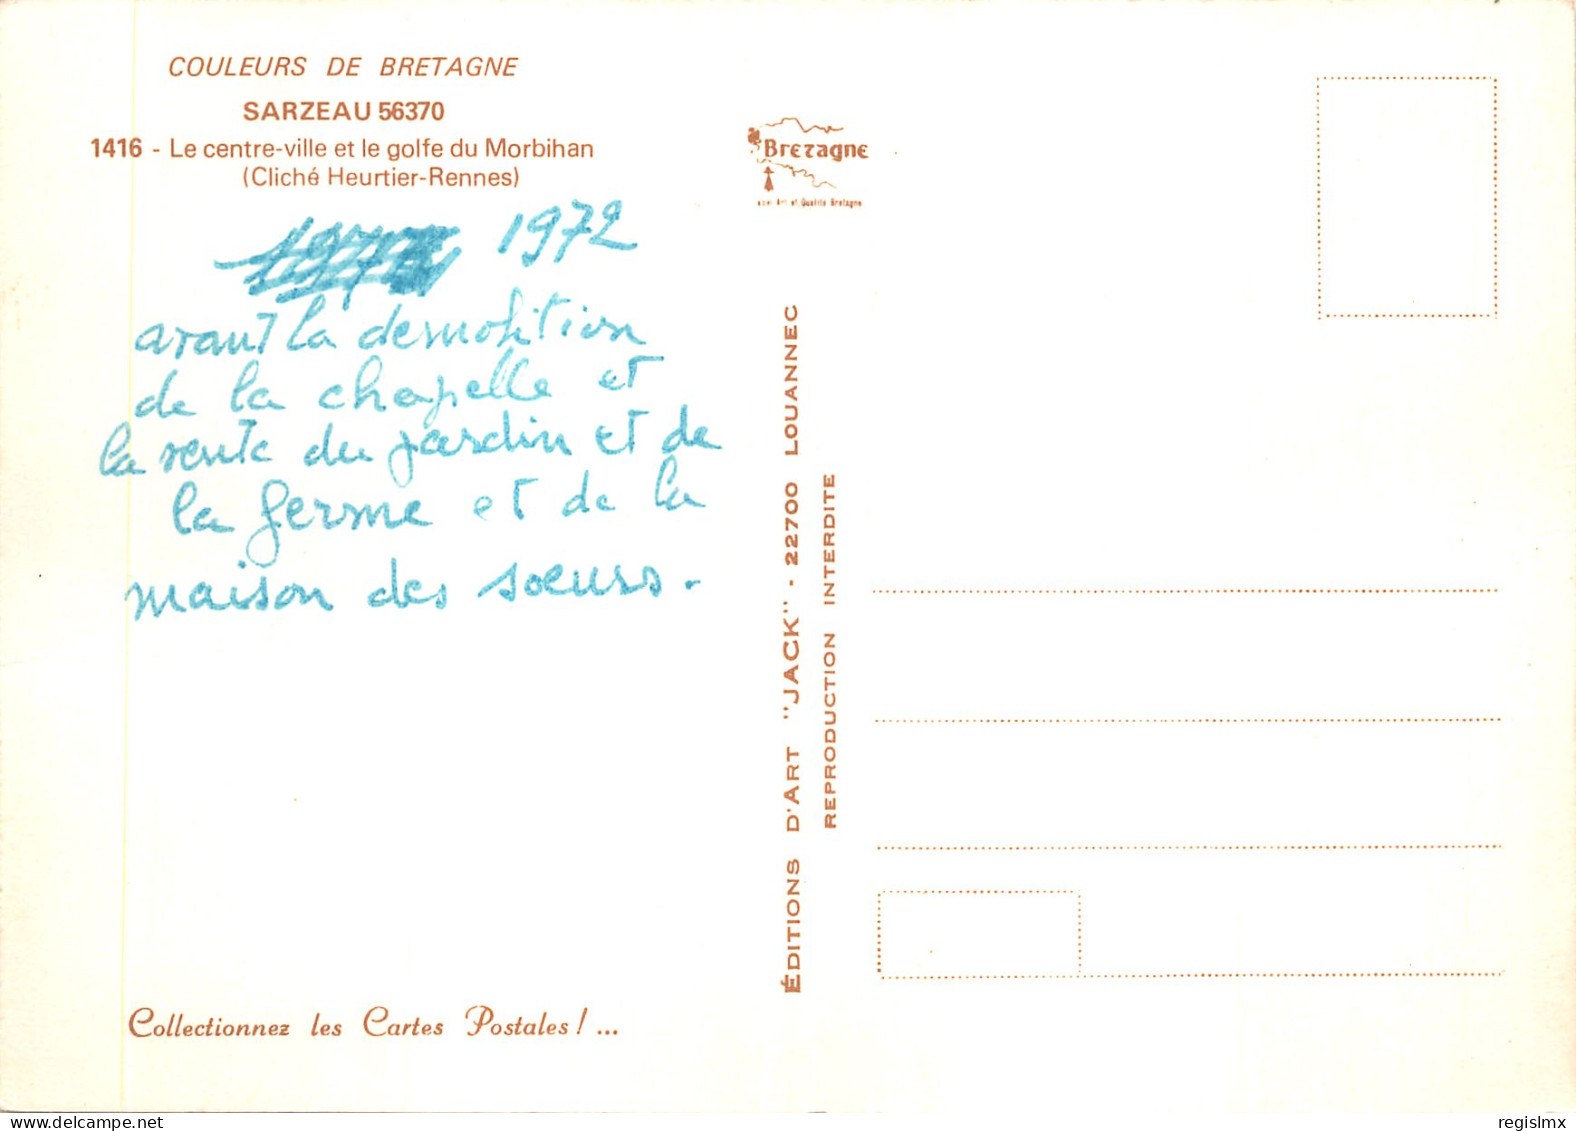 COULEURS DE BRETAGNE
SARZEAU 56370
1416 - Le centre-ville et le golfe du Morbihan
(Cliché Heurtier-Rennes)
1972
avant la demolition
de la chapelle et
la vente du jardin et de
la ferme et de la
maison des soeurs.
Collectionnez les Cartes Postales ! ...
Bretagne
Art et Qualité Bretagne
ÉDITIONS D'ART "JACK" - 22700 LOUANNEC
REPRODUCTION INTERDITE
regislmx